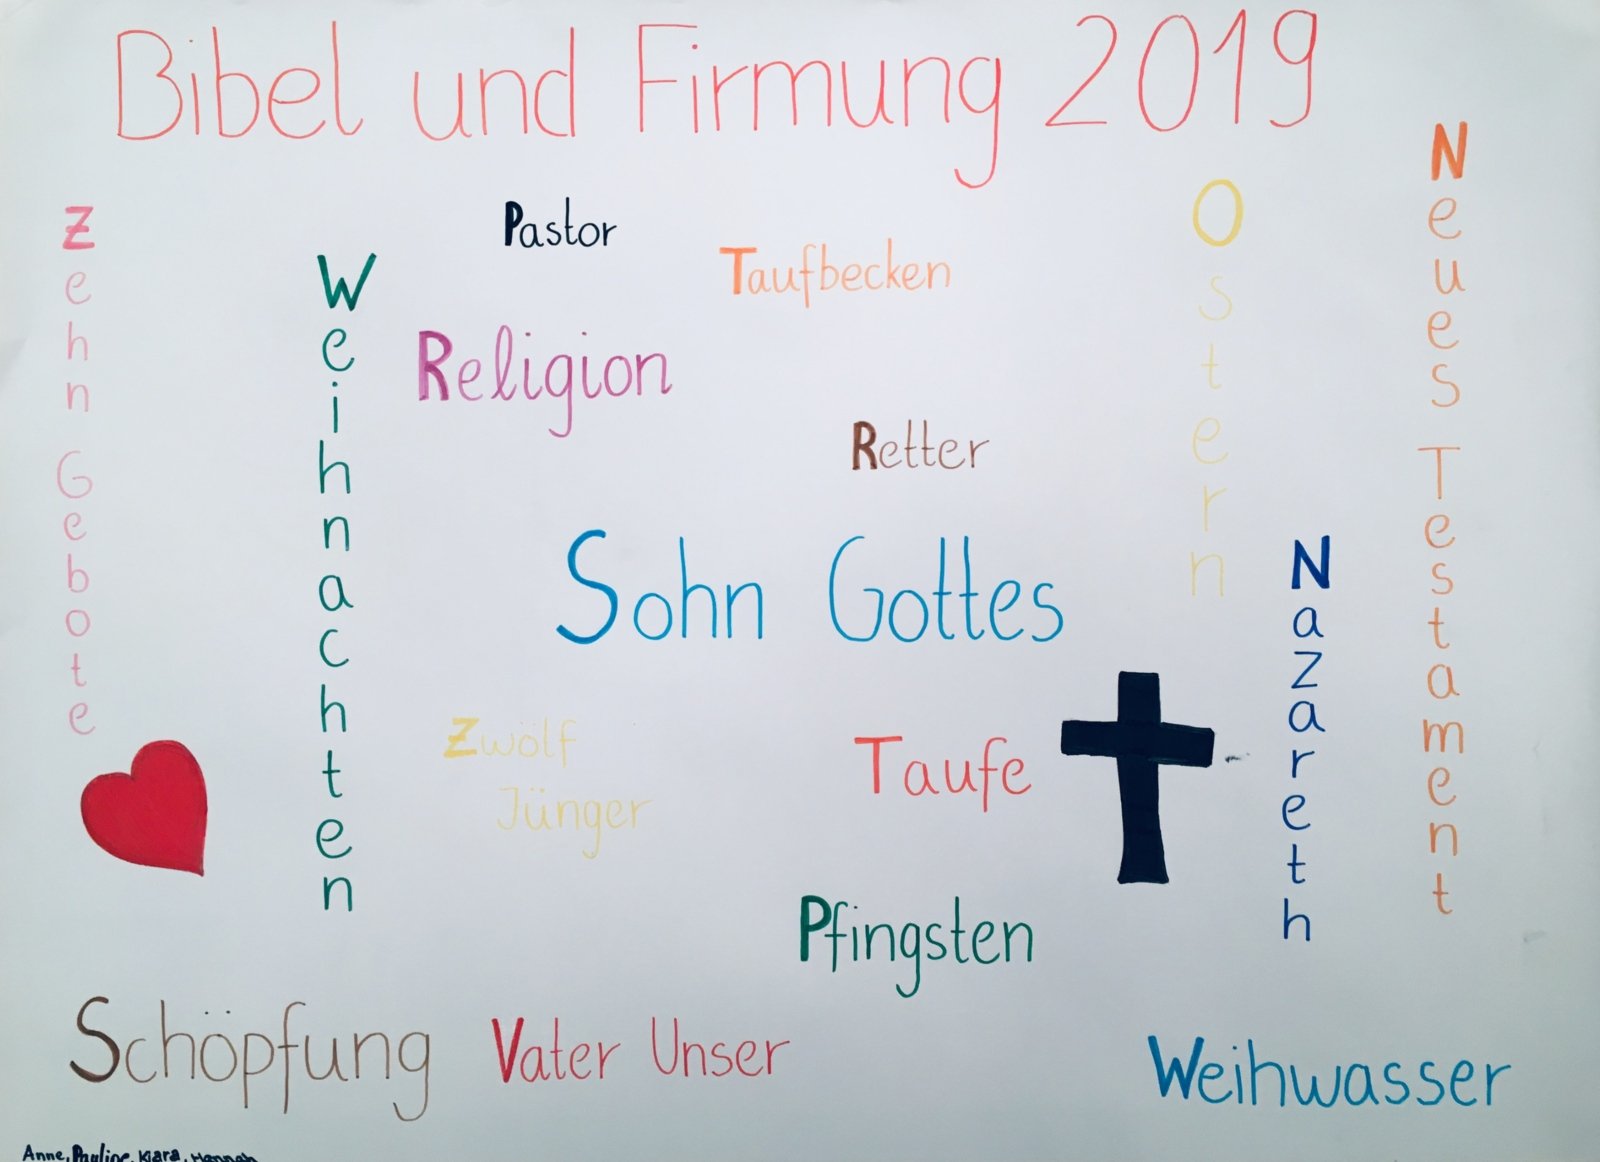 Bibel und Firmung 2019
Zehn Gebote
Weihnachten
Pastor
Taufbecken
Religion
Retter
Ostern
Neues Testament
Sohn Gottes
Nazareth
Zwölf
Jünger
Taufe
Pfingsten
Schöpfung
Vater Unser
Weihwasser
Anne, Pauline, Kiara, Hannah